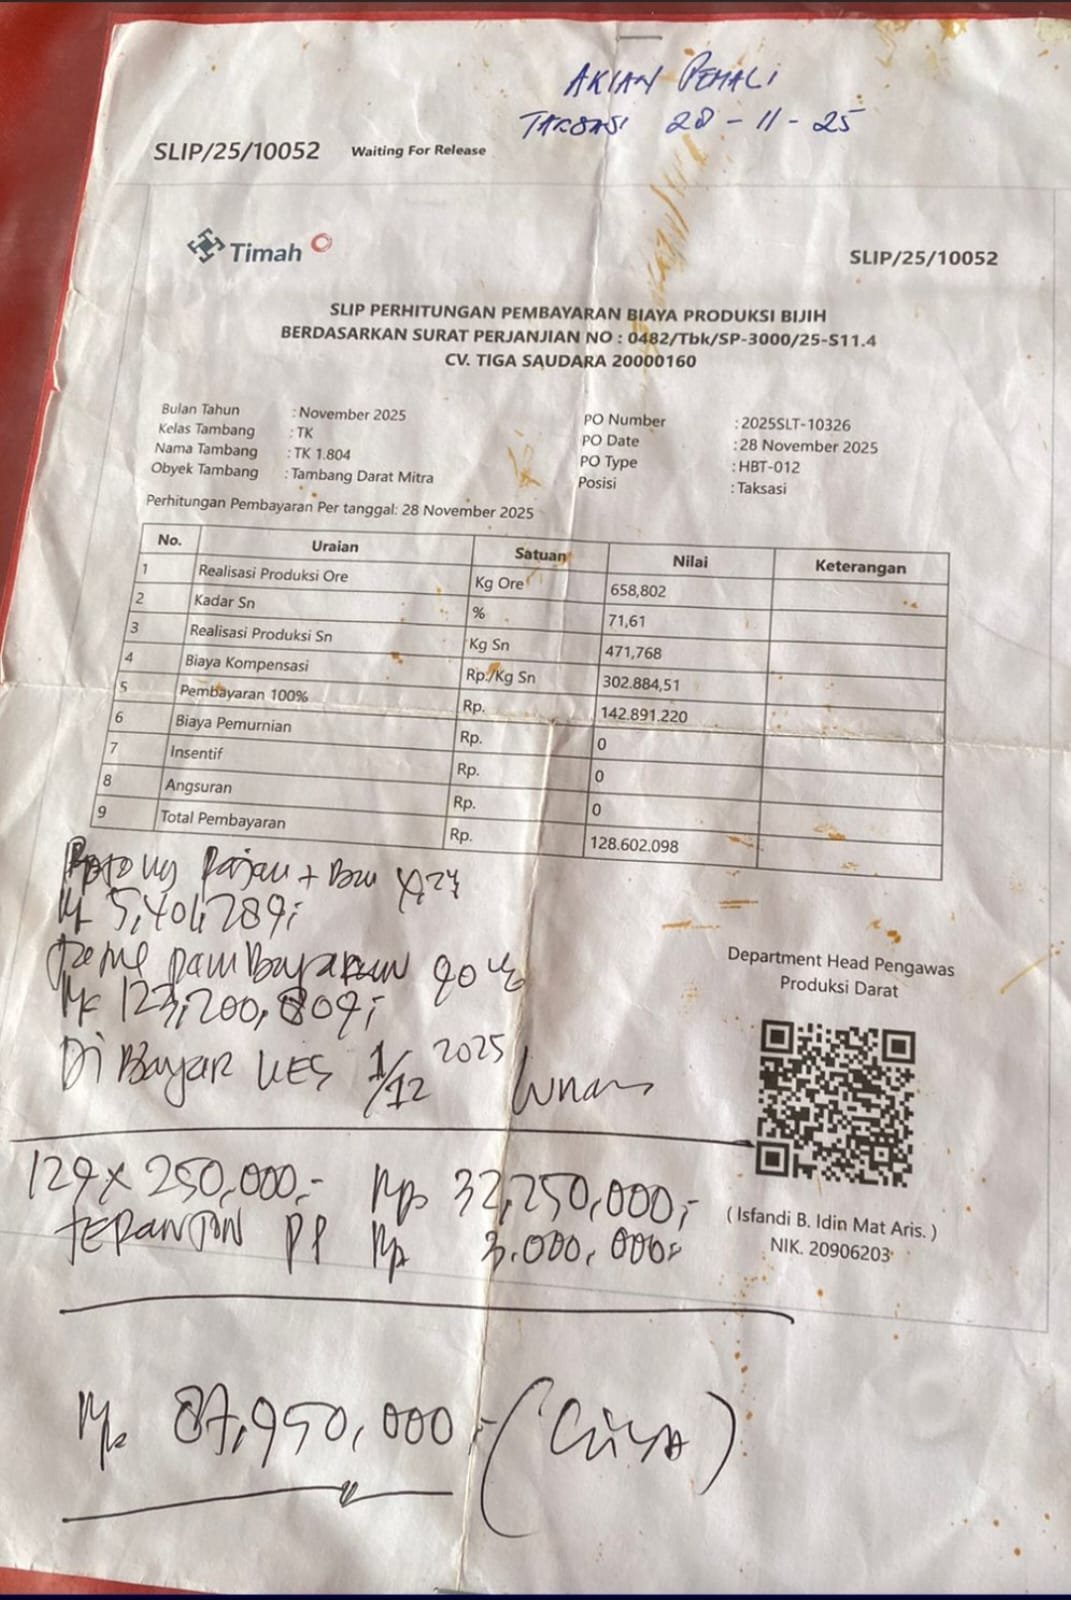 AKIAN PEMALI
TAKSASI 28-11-25
SLIP/25/10052 Waiting For Release
Timah
SLIP/25/10052
SLIP PERHITUNGAN PEMBAYARAN BIAYA PRODUKSI BIJIH
BERDASARKAN SURAT PERJANJIAN NO : 0482/Tbk/SP-3000/25-S11.4
CV. TIGA SAUDARA 20000160
Bulan Tahun : November 2025 PO Number : 2025SLT-10326
Kelas Tambang : TK PO Date : 28 November 2025
Nama Tambang : TK 1.804 PO Type : HBT-012
Obyek Tambang : Tambang Darat Mitra Posisi : Taksasi
Perhitungan Pembayaran Per tanggal: 28 November 2025
No. Uraian Satuan Nilai Keterangan
1 Realisasi Produksi Ore Kg Ore 658,802
2 Kadar Sn % 71,61
3 Realisasi Produksi Sn Kg Sn 471,768
4 Biaya Kompensasi Rp./Kg Sn 302.884,51
5 Pembayaran 100% Rp. 142.891.220
6 Biaya Pemurnian Rp. 0
7 Insentif Rp. 0
8 Angsuran Rp. 0
9 Total Pembayaran Rp. 128.602.098
Potong Pajak +
Rp 5,401,289,-
pembayaran 90%
Rp 123,200,809,-
Di Bayar 1/12 2025 Lunas
Department Head Pengawas
Produksi Darat
129 x 250,000,- Rp 32,250,000,-
PP Rp 3.000,000,-
( Isfandi B. Idin Mat Aris. )
NIK. 20906203
Rp. 87,950,000,-